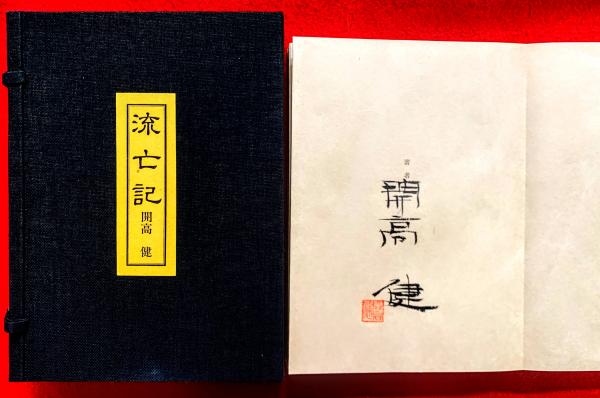 流亡記
開高 健
著者
開高
健